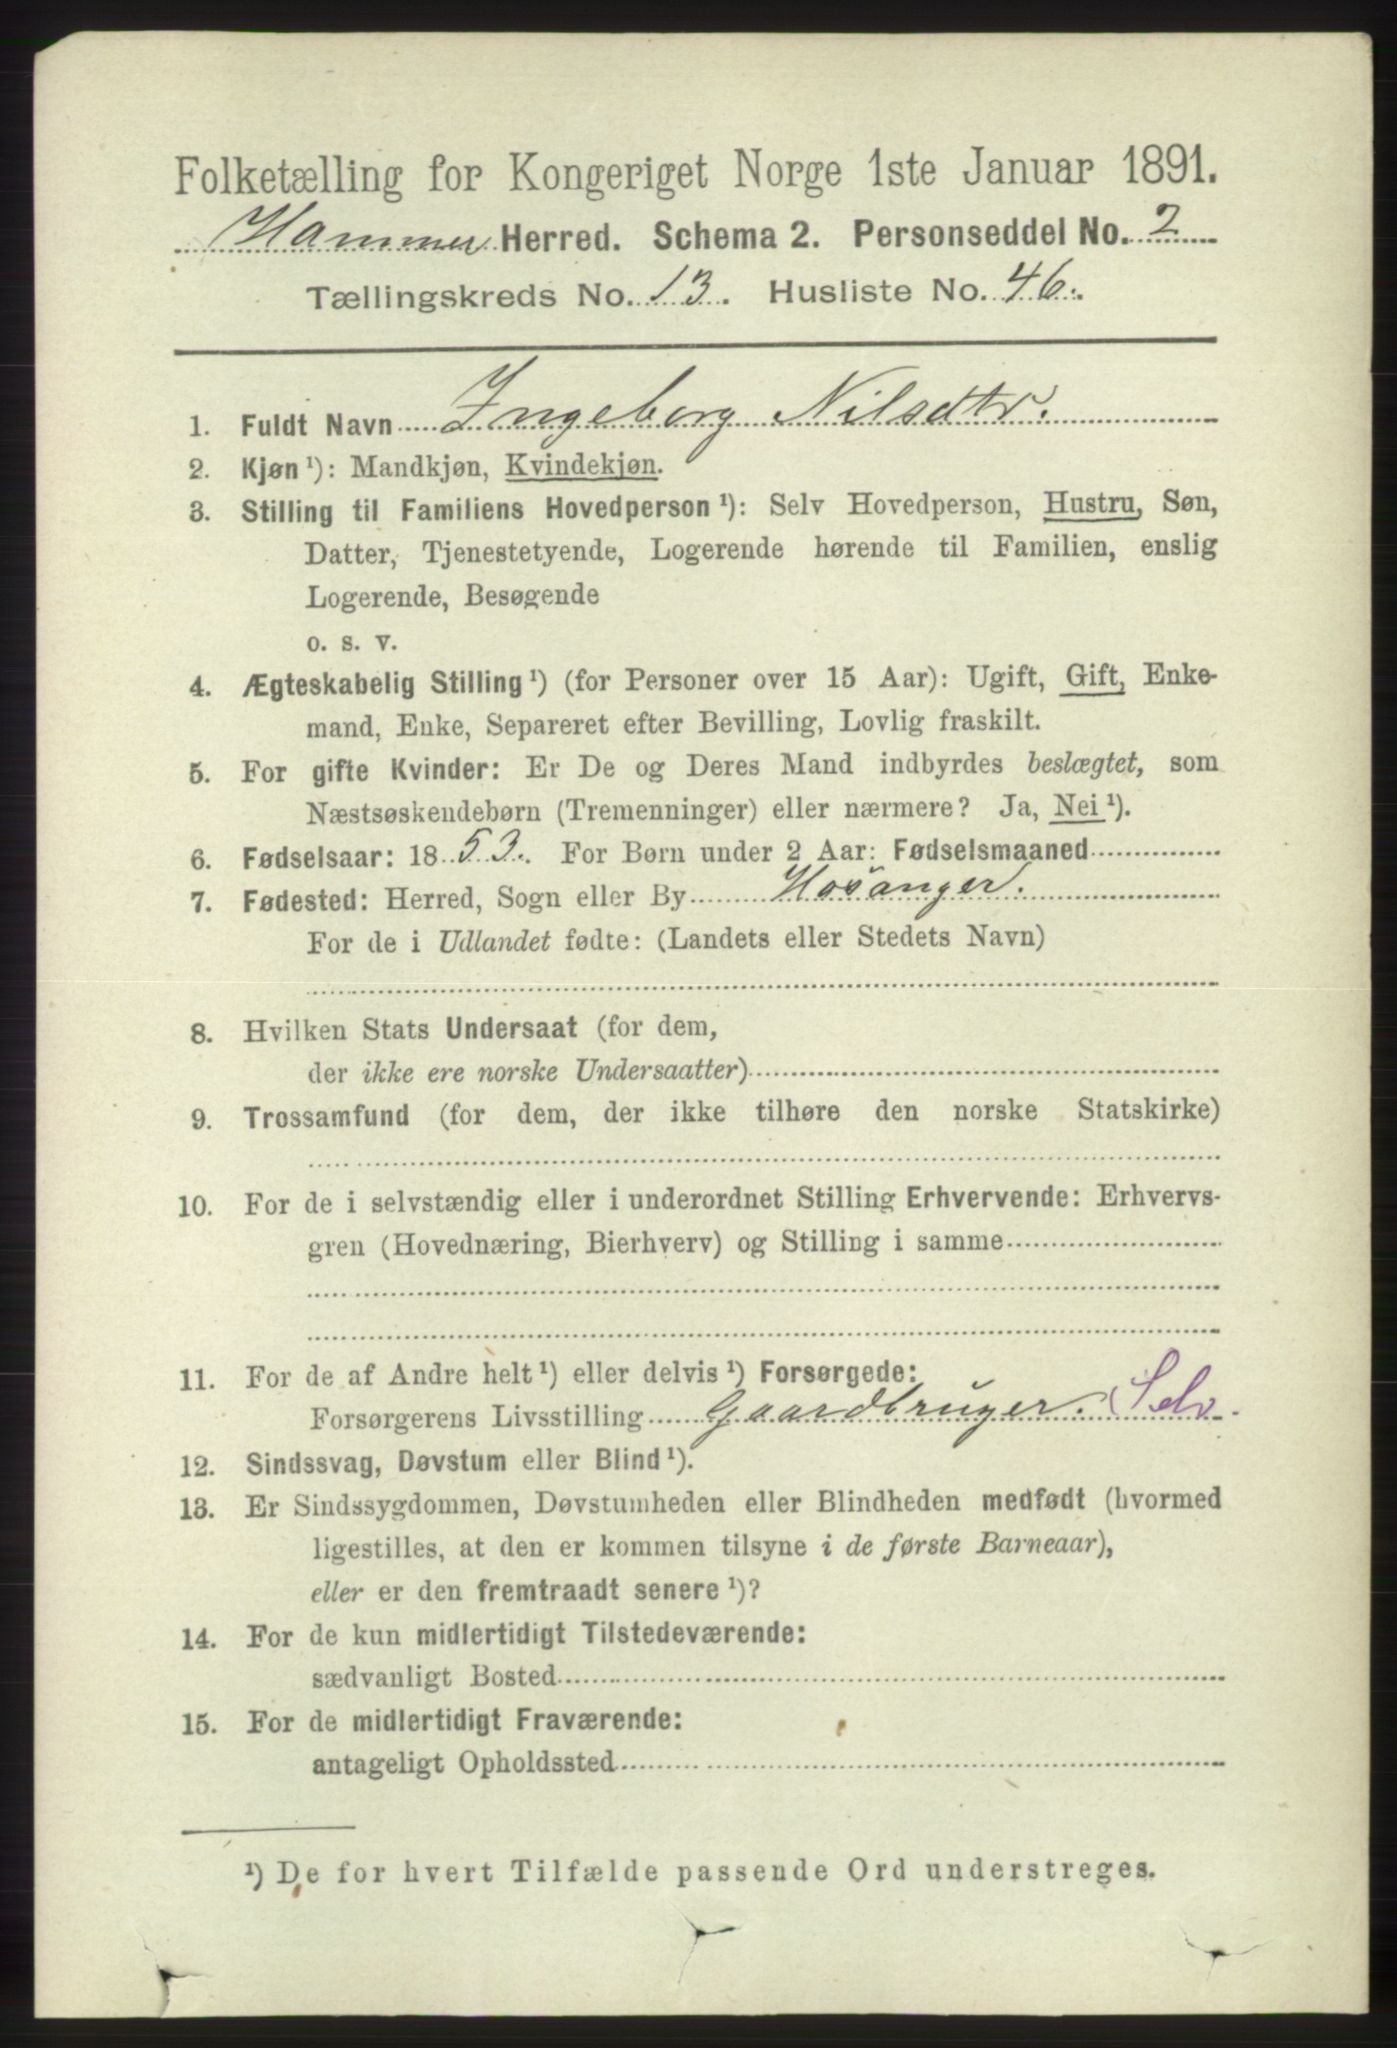 Folketælling for Kongeriget Norge 1ste Januar 1891.
Hammer Herred. Schema 2. Personseddel No. 2
Tællingskreds No. 13. Husliste No. 46.
1. Fuldt Navn Ingeborg Nilsdtr.
2. Kjøn ¹): Mandkjøn, Kvindekjøn.
3. Stilling til Familiens Hovedperson ¹): Selv Hovedperson, Hustru, Søn,
Datter, Tjenestetyende, Logerende hørende til Familien, enslig
Logerende, Besøgende
o. s. v.
4. Ægteskabelig Stilling ¹) (for Personer over 15 Aar): Ugift, Gift, Enke-
mand, Enke, Separeret efter Bevilling, Lovlig fraskilt.
5. For gifte Kvinder: Er De og Deres Mand indbyrdes beslægtet, som
Næstsøskendebørn (Tremenninger) eller nærmere? Ja, Nei ¹).
6. Fødselsaar: 1853. For Børn under 2 Aar: Fødselsmaaned
7. Fødested: Herred, Sogn eller By Hosanger.
For de i Udlandet fødte: (Landets eller Stedets Navn)
8. Hvilken Stats Undersaat (for dem,
der ikke ere norske Undersaatter)
9. Trossamfund (for dem, der ikke tilhøre den norske Statskirke)
10. For de i selvstændig eller i underordnet Stilling Erhvervende: Erhvervs-
gren (Hovednæring, Bierhverv) og Stilling i samme
11. For de af Andre helt ¹) eller delvis ¹) Forsørgede:
Forsørgerens Livsstilling Gaardbruger. Selv.
12. Sindssvag, Døvstum eller Blind ¹).
13. Er Sindssygdommen, Døvstumheden eller Blindheden medfødt (hvormed
ligestilles, at den er kommen tilsyne i de første Barneaar),
eller er den fremtraadt senere ¹)?
14. For de kun midlertidigt Tilstedeværende:
sædvanligt Bosted
15. For de midlertidigt Fraværende:
antageligt Opholdssted
¹) De for hvert Tilfælde passende Ord understreges.